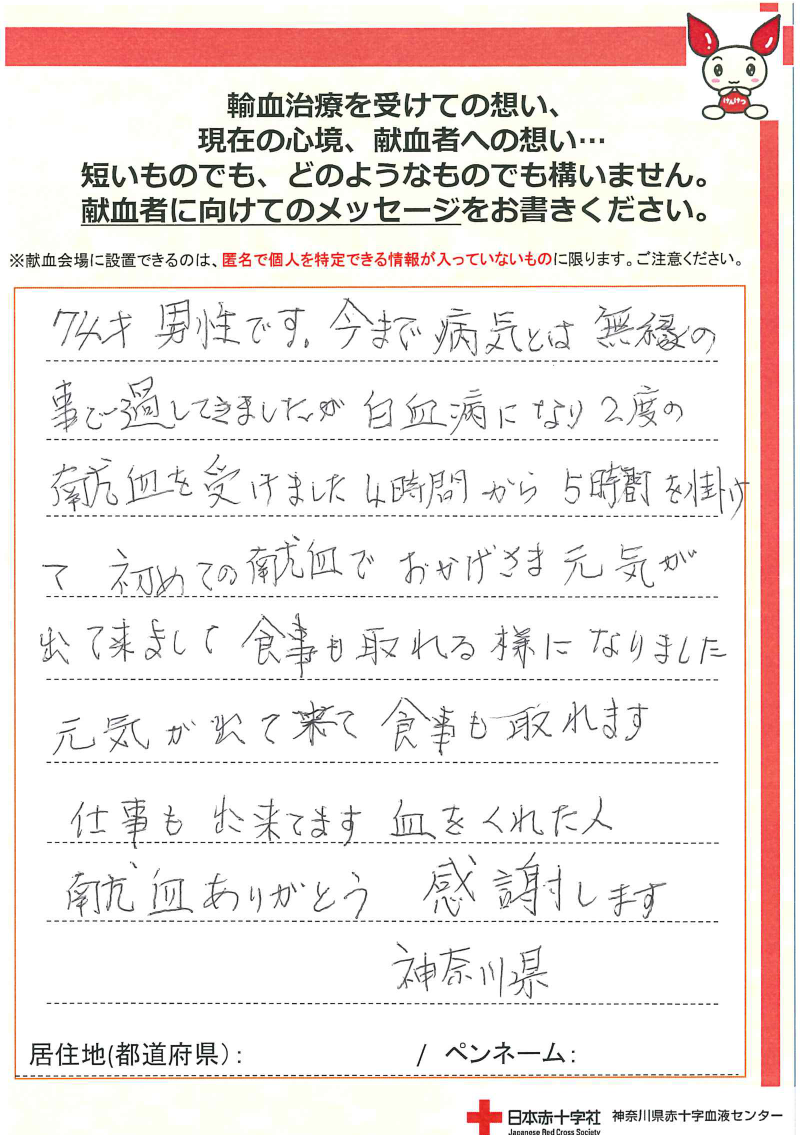 けんけつ
輸血治療を受けての想い、
現在の心境、献血者への想い…
短いものでも、どのようなものでも構いません。
献血者に向けてのメッセージをお書きください。
※献血会場に設置できるのは、匿名で個人を特定できる情報が入っていないものに限ります。ご注意ください。
74才 男性です。今まで病気とは無縁の
事で過してきましたが 白血病になり 2度の
献血を受けました 4時間から 5時間を掛け
て 初めての献血で おかげさま元気が
出て来まして 食事も取れる様になりました
元気が出て来て 食事も取れます
仕事も出来てます 血をくれた人
献血ありがとう 感謝します
神奈川県
居住地(都道府県)： / ペンネーム：
日本赤十字社 神奈川県赤十字血液センター
Japanese Red Cross Society